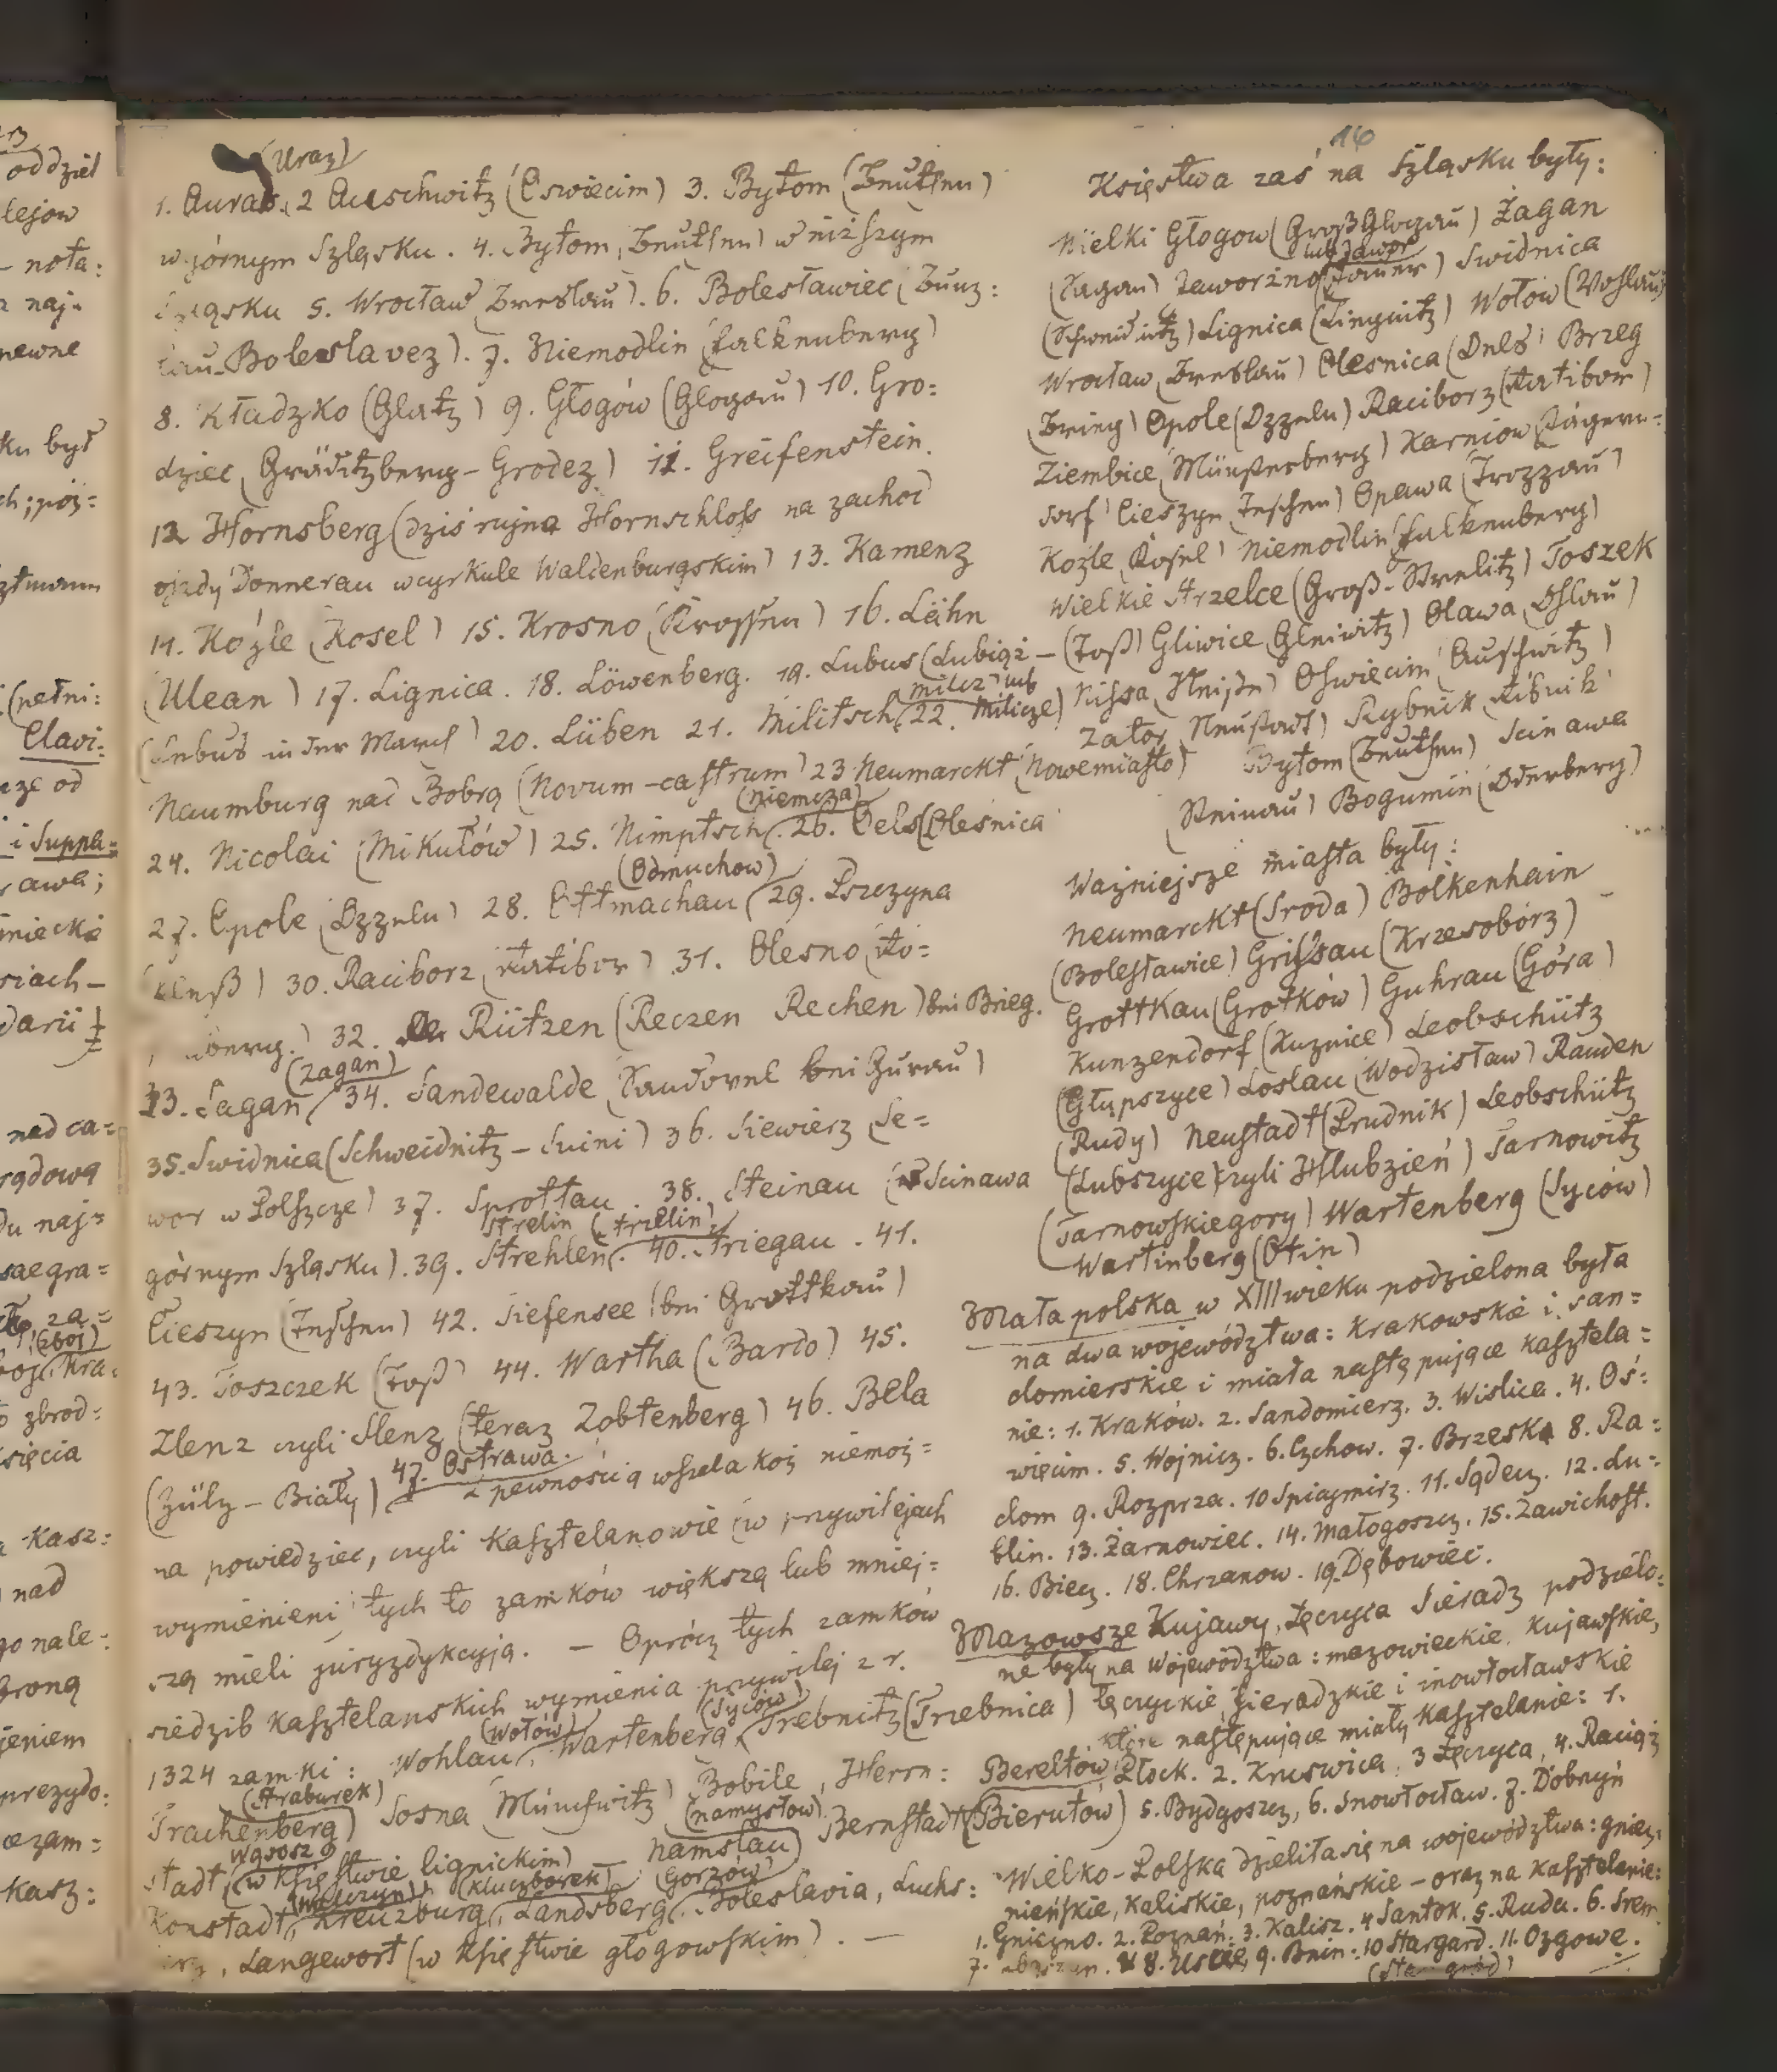 16
(Uraz)
1. Auras. 2 Auschwitz (Oswiecim) 3. Bytom (Beuthen)
w górnym Szląsku. 4. Bytom, Beuthen) w niższym
Szląsku 5. Wrocław (Breslau). 6. Bolesławiec (Bunz:
lau-Boleslavez). 7. Niemodlin (Falkenberg)
8. Kładzko (Glatz) 9. Głogów (Glogau) 10. Gro:
dziec (Gräditzberg-Grodez) 11. Greifenstein.
12 Hornsberg (dziś rujna Hornschloss na zachod
ojzdy Donnerau w cyrkule Waldenburgskim) 13. Kamenz
14. Koźle (Kosel) 15. Krosno (Krossen) 16. Lähn
(Ulean) 17. Lignica. 18. Löwenberg. 19. Lubus (Lubiąż –
(Lebus in der March) 20. Lüben 21. Militsch (Milicz lub Milicze) 22.
Naumburg nad Bobrą (Novum-castrum) 23 Neumarckt (Nowemiasto)
24. Nicolai (Mikułów) 25. Nimptsch (Niemcza). 26. Oels (Olesnica
27. Opole (Oppeln) 28. Ottmachau (Odmuchow) 29. Pszczyna
(Pless) 30. Raciborz (Ratibor) 31. Olesno (Ro=
senberg.) 32. Rützen (Reczen Rechen) bei Brieg.
33. Sagan (Zagan) 34. Sandewalde (Sandovel bei Gurau)
35. Swidnica (Schweidnitz – Suini) 36. Siewierz (Se=
wor w Polszcze) 37. Sprottau. 38. Steinau (Scinawa
górnym Szląsku). 39. Strehlen (Strelin (Strzelin). 40. Striegau. 41.
Cieszyn (Teschen) 42. Tiefensee (bei Grottkau)
43. Toszczek (Tost) 44. Wartha (Bardo) 45.
Zlenz czyli Slenz (teraz Zobtenberg) 46. Bela
(Zülz – Biały) 47. Ostrawa. z pewnością wszelakoż niemoż=
na powiedziec, czyli Kasztelanowie (w przywilejach
wymienieni) tych to zamków większą lub mniej=
szą mieli juryzdykcyją. – Oprócz tych zamków
siedzib kasztelanskich wymienia przywilej z r.
1324 zamki: Wohlau (Wołów), Wartenberg (Syców), Trebnitz (Trzebnica)
Trachenberg (Straburek) Sosna (Münchwitz) Bobile, Herrn:
stadt (Wąsosz w Księstwie lignickim) – Namslau (Namysłow) Bernstadt (Bierutów) Berełtów
Konstadt (Wołczyn), Kreuzburg (Kluczborek), Landsberg (Gorzów), Boleslavia, Luchs:
Langewort (w Księstwie głogowskim). –
Księstwa zaś na Szląsku były:
Wielki Głogow (Groß Glogau) Żagan
(Sagan) Jaworzno (lub Jawor Jauer) Swidnica
(Schweidnitz) Lignica (Liegnitz) Wołow (Wohlau)
Wrocław (Breslau) Olesnica (Oels) Brzeg
(Brieg) Opole (Oppeln) Raciborz (Ratibor)
Ziembice (Münsterberg) Karniow (Jägern=
dorf) Cieszyn (Teschen) Opawa (Troppau)
Koźle (Kosel) Niemodlin (Falkenberg)
Wielkie Strzelce (Groß-Strelitz) Toszek
(Tost) Gliwice (Gleiwitz) Oława (Ohlau)
Nissa (Neiße) Oswięcim (Auschwitz)
Zator (Neustadt) Rybnik (Ribnik)
Bytom (Beuthen) Scinawa
(Steinau) Bogumin (Oderberg)
Ważniejsze miasta były:
Neumarckt (Sroda) Bolkenhain
(Bolesławice) Grissau (Krzesobórz)
Grottkau (Grotków) Guhrau (Góra)
Kunzendorf (Kuznice) Leobschütz
(Głupszyce) Loslau (Wodzisław) Rauden
(Rudy) Neustadt (Prudnik) Leobschütz
(Lubszyce) czyli Hlubzień) Tarnowitz
(Tarnowskiegory) Wartenberg (Syców)
Wartinberg (Otin)
Małapolska w XIII wieku podzielona była
na dwa województwa: Krakowskie i san=
domierskie i miała następujące kasztela=
nie: 1. Kraków. 2. Sandomierz. 3. Wislica. 4. Oś:
więcim. 5. Wojnicz. 6. Czchow. 7. Brzesko 8. Ra:
dom 9. Rozprza. 10 Spicymirz. 11. Sądecz. 12. Lu=
blin. 13. Żarnowiec. 14. Małogoszcz. 15. Zawichost.
16. Biecz. 18. Chrzanow. 19. Dębowiec.
Mazowsze Kujawy, Łęczyca Sieradz podzielo:
ne były na Województwa: mazowieckie, Kujawskie,
łęczyckie, sieradzkie i inowłocławskie
które następujące miały Kasztelanie: 1.
Płock. 2. Kruswica, 3 Łęczyca, 4. Raciąż
5. Bydgoszcz, 6. Inowłocław. 7. Dobrzyń
Wielko-Polska dzieliła się na województwa: gniez:
nieńskie, Kaliskie, poznańskie – oraz na Kasztelanie:
1. Gniezno. 2. Poznań. 3. Kalisz. 4 Santok. 5. Ruda. 6. Srem
7. 8. Uscie, 9. Bnin. 10 Stargard. 11. Ozgowe.